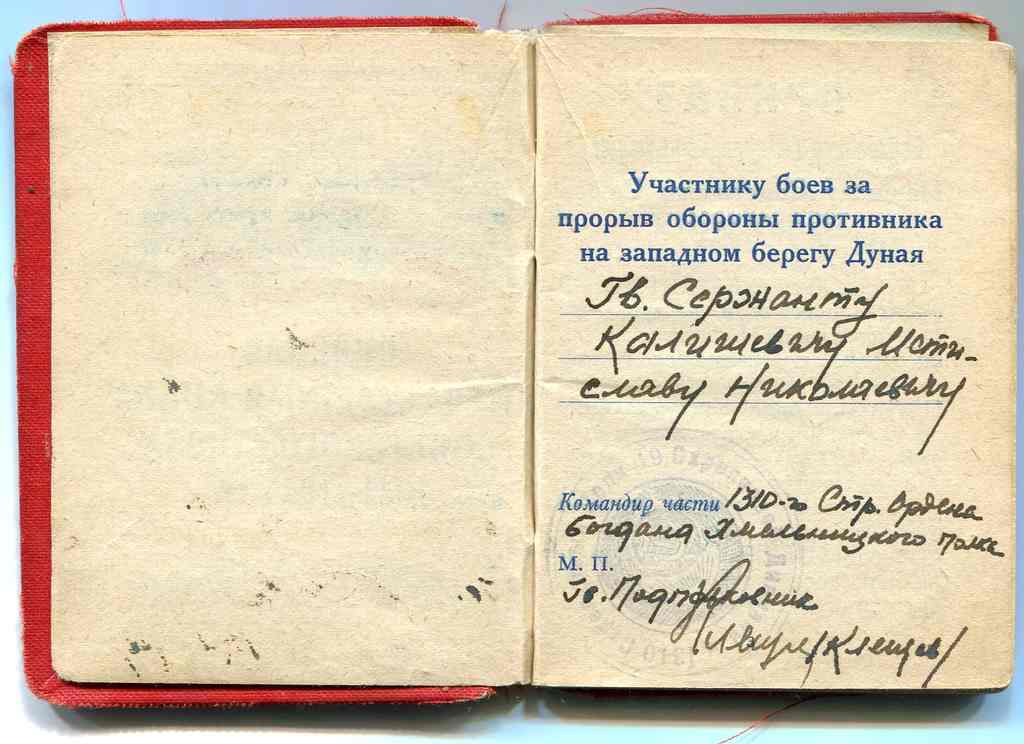 Участнику боев за
прорыв обороны противника
на западном берегу Дуная
Гв. Сержанту
Калишевичу Мсти-
славу Николаевичу
Командир части 1310-го Стр. Ордена
Богдана Хмельницкого полка
М. П.
Гв. Подполковник
/Клещев/
1310